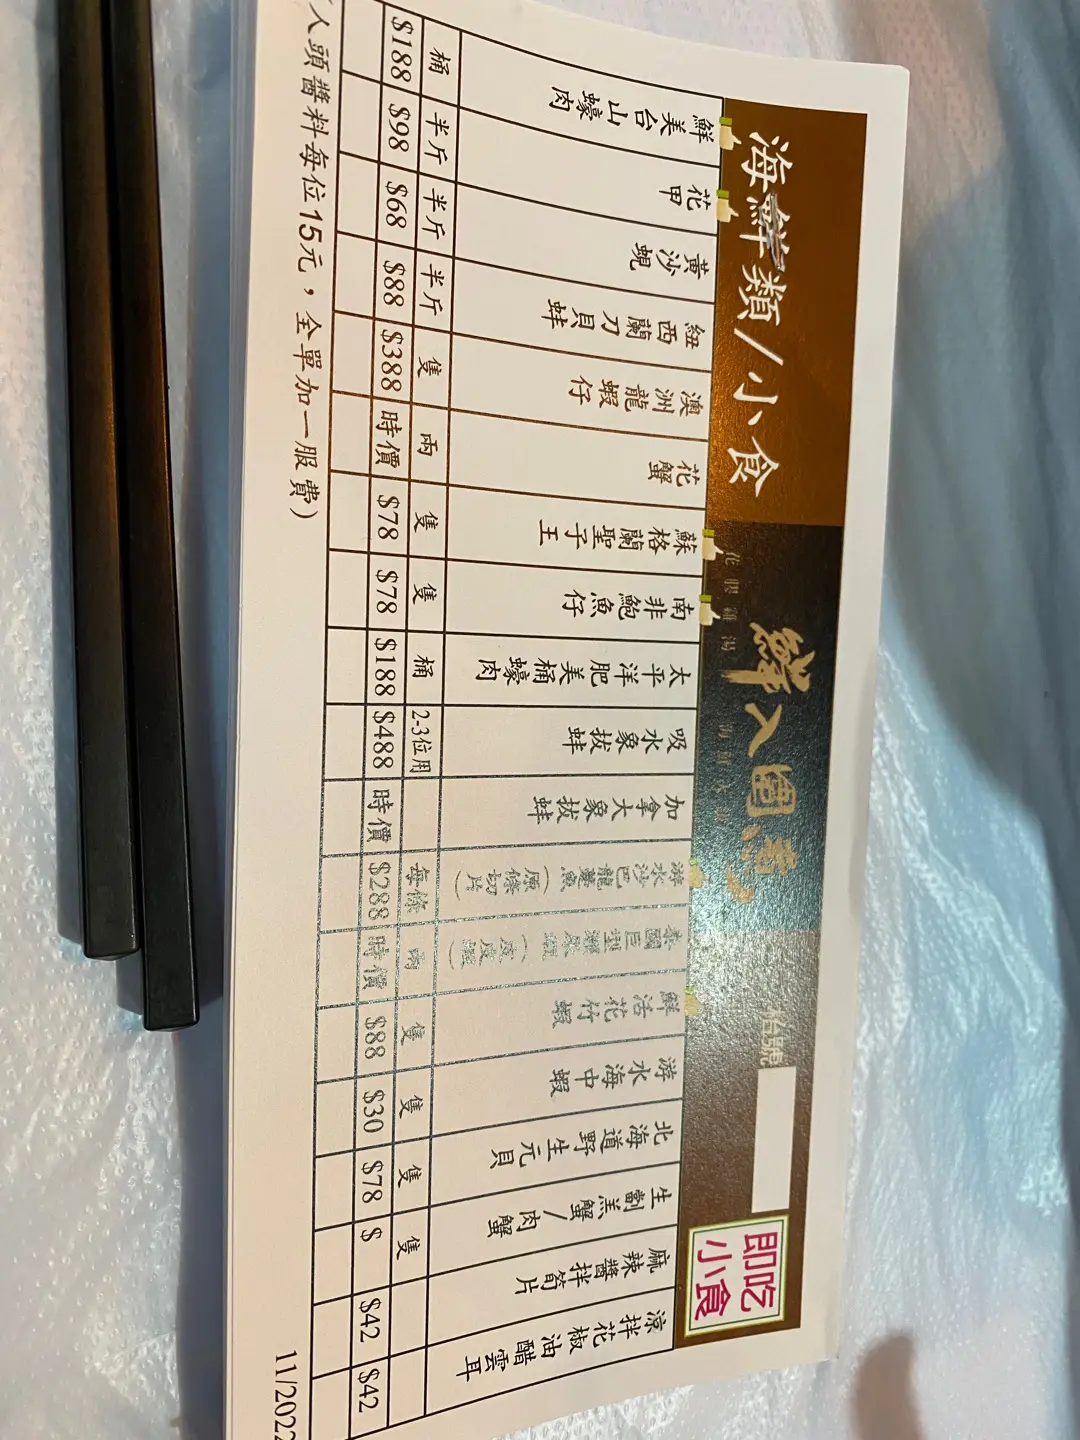 海鮮類/小食
花膠雞湯
鮮入圍煮
枱號
即吃
小食
鮮美台山蠔肉 桶 $188
花甲 半斤 $98
黃沙蜆 半斤 $68
紐西蘭刀貝蚌 半斤 $88
澳洲龍蝦仔 隻 $388
花蟹 兩 時價
蘇格蘭聖子王 隻 $78
南非鮑魚仔 隻 $78
太平洋肥美桶蠔肉 桶 $188
吸水象拔蚌 2-3位用 $488
加拿大象拔蚌 時價
游水沙巴龍躉魚(原條切片) 每條 $288
泰國巨型瀨尿蝦(皮皮蝦) 兩 時價
鮮活花竹蝦 隻 $88
游水海中蝦 隻 $30
北海道野生元貝 隻 $78
生劏羔蟹/肉蟹 隻 $
麻辣醬拌筍片 $42
涼拌花椒油醋雲耳 $42
人頭醬料每位15元，全單加一服費)
11/2022